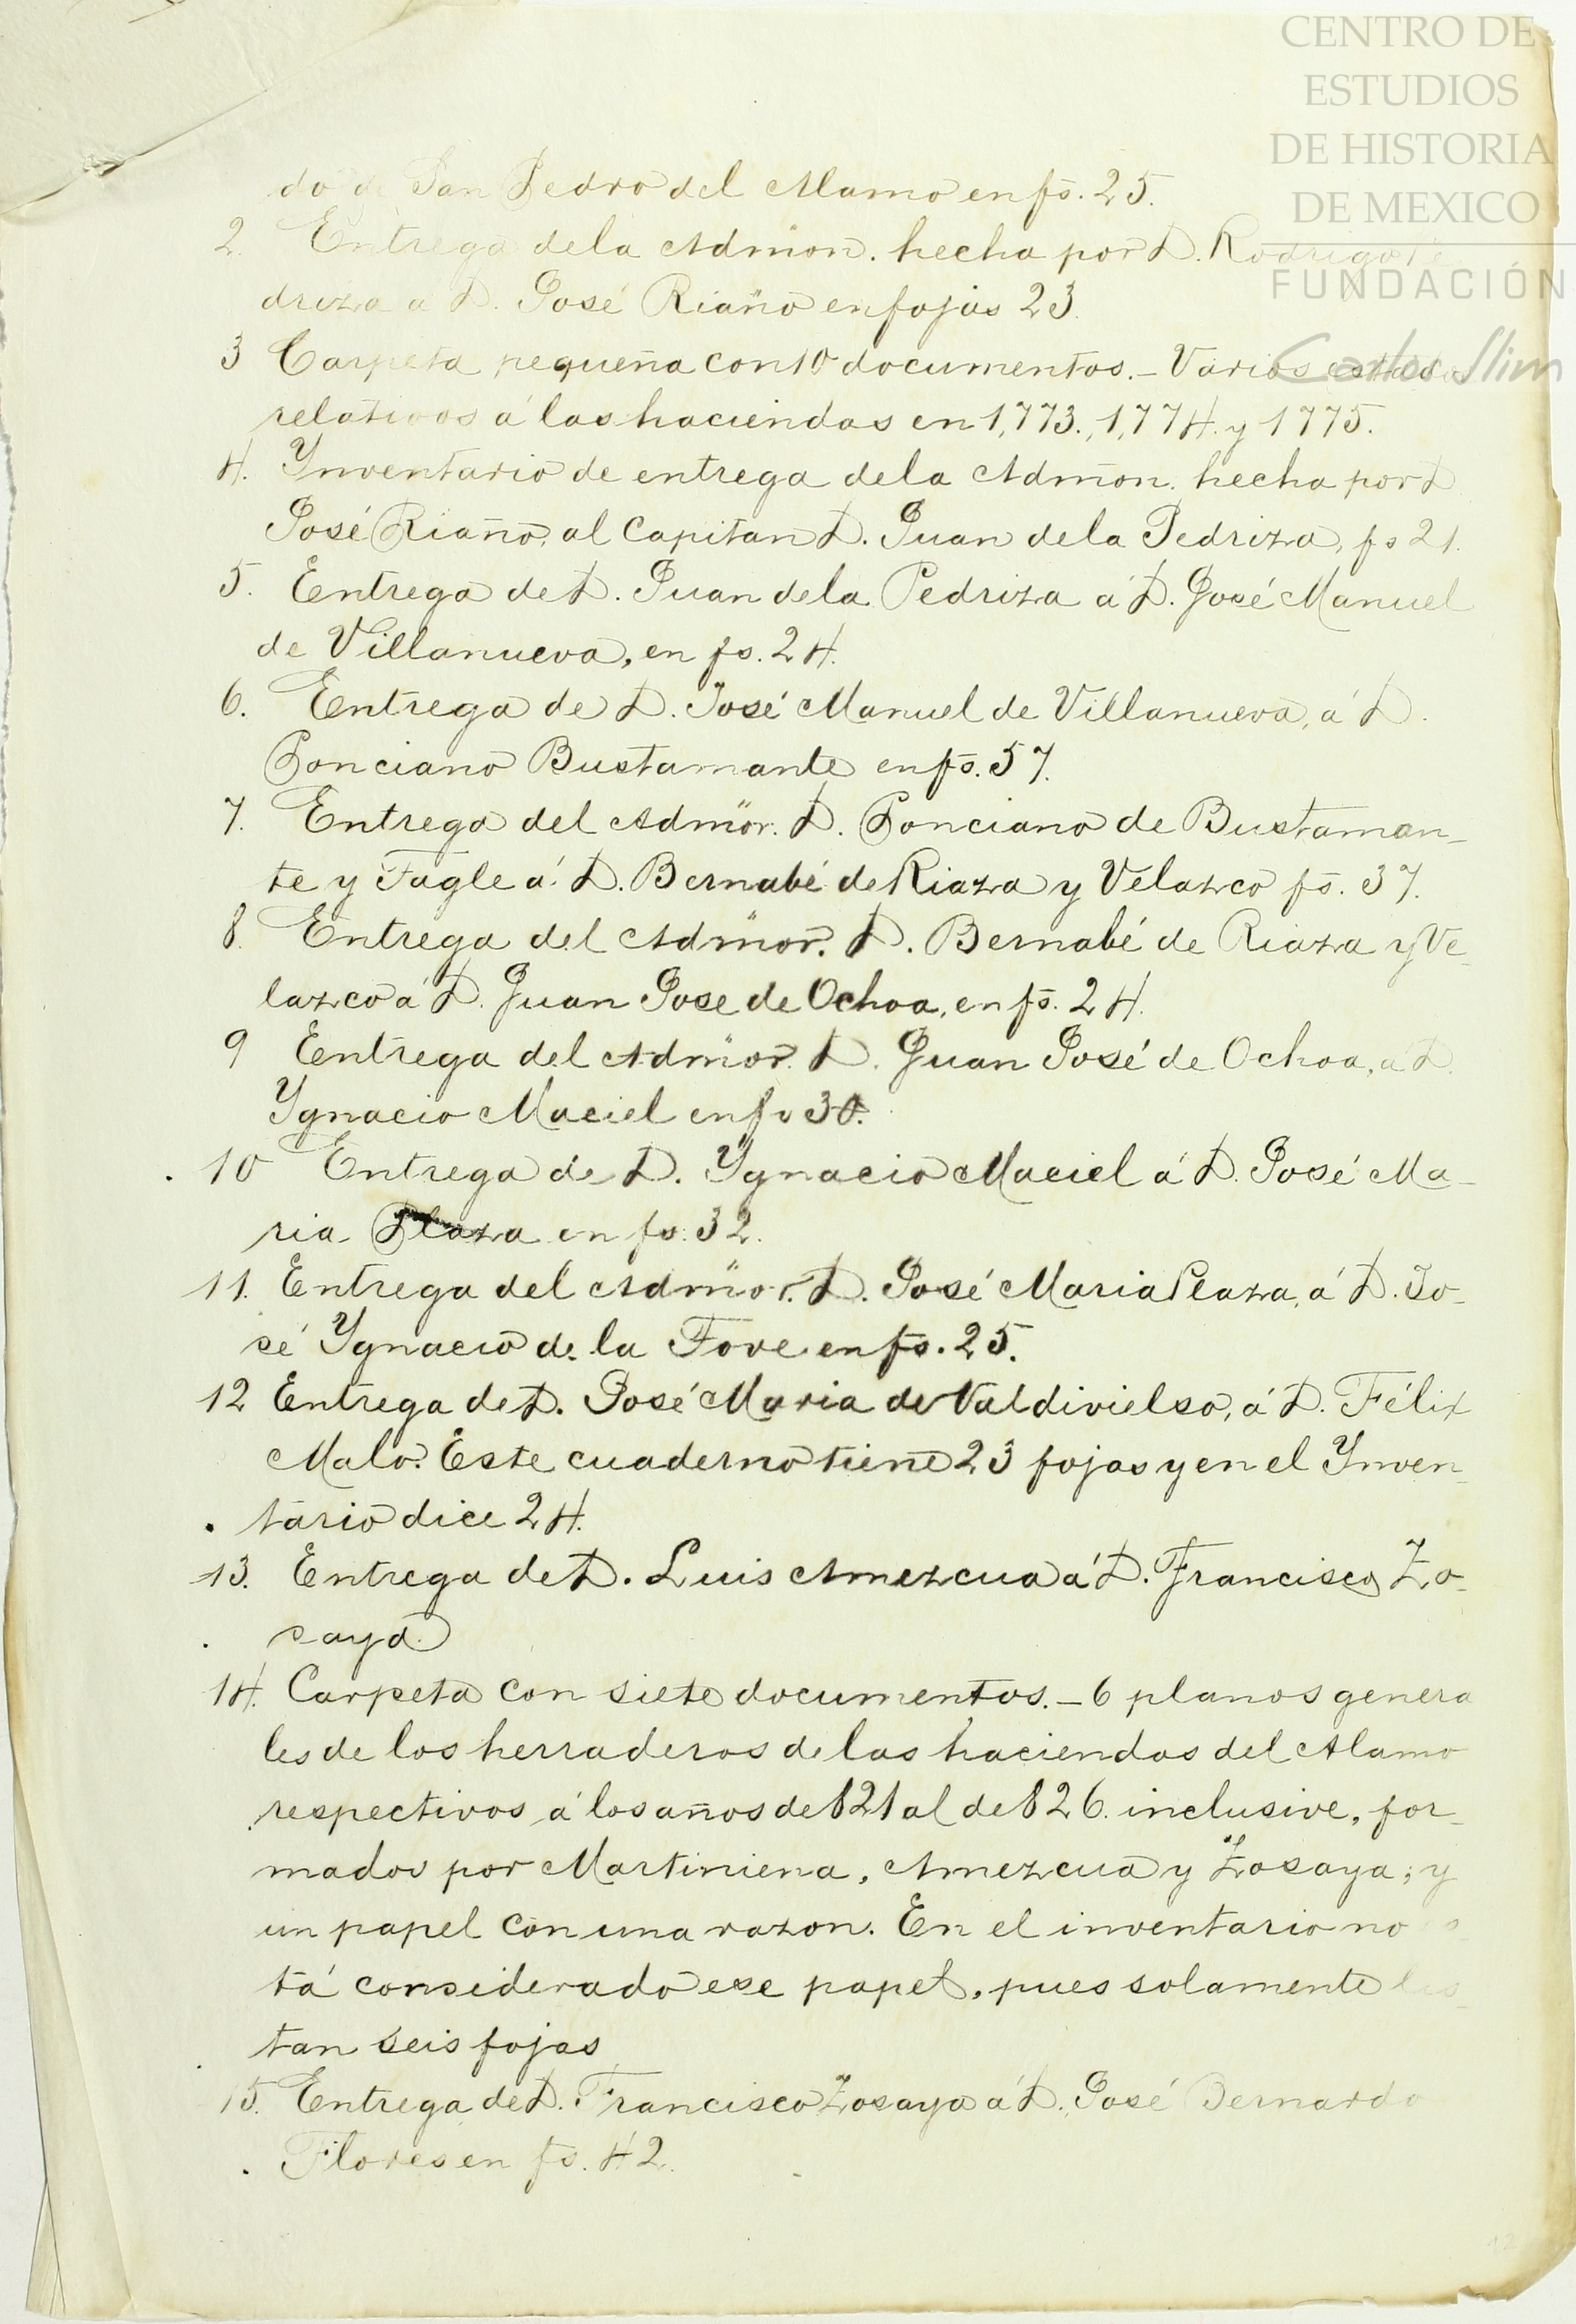 CENTRO DE
ESTUDIOS
DE HISTORIA
DE MEXICO
FUNDACIÓN
Carlos Slim
do de San Pedro del Alamo en fs. 25.
2. Entrega de la Admon. hecha por D. Rodrigo
driza a D. José Riaño en fojas 23
3 Carpeta pequeña con 10 documentos.- Varios estados
relativos á las haciendas en 1,773., 1,774. y 1775.
4. Ynventario de entrega de la Admon. hecha por D
José Riaño, al Capitan D. Juan de la Pedriza, fs 21.
5. Entrega de D. Juan de la Pedriza á D. José Manuel
de Villanueva, en fs. 24.
6. Entrega de D. José Manuel de Villanueva, á D.
Ponciano Bustamante en fs. 57.
7. Entrega del Admor. D. Ponciano de Bustaman-
te y Tagle á D. Bernabé de Riaza y Velazco fs. 37.
8. Entrega del Admor. D. Bernabé de Riaza y Ve-
lazco á D. Juan Jose de Ochoa, en fs. 24.
9 Entrega del Admor. D. Juan José de Ochoa, á D.
Ygnacio Maciel en fs 30.
10 Entrega de D. Ygnacio Maciel á D. José Ma-
ria Plaza en fs. 32.
11. Entrega del Admor. D. José Maria Plaza, á D. Jo-
sé Ygnacio de la Fove en fs. 25.
12 Entrega de D. José Maria de Valdivielso, á D. Félix
Malo. Este cuaderno tiene 23 fojas y en el Ynven-
tario dice 24.
13. Entrega de D. Luis Amezcua á D. Francisco Zo-
saya.
14. Carpeta con siete documentos.- 6 planos genera
les de los herraderos de las haciendas del Alamo
respectivos á los años de 821 al de 826. inclusive, for-
mados por Martiniena, Amezcua y Zosaya; y
un papel con una razon. En el inventario no es
tá considerado ese papel, pues solamente lis-
tan seis fojas
15. Entrega de D. Francisco Zosaya á D. José Bernardo
Flores en fs. 42.